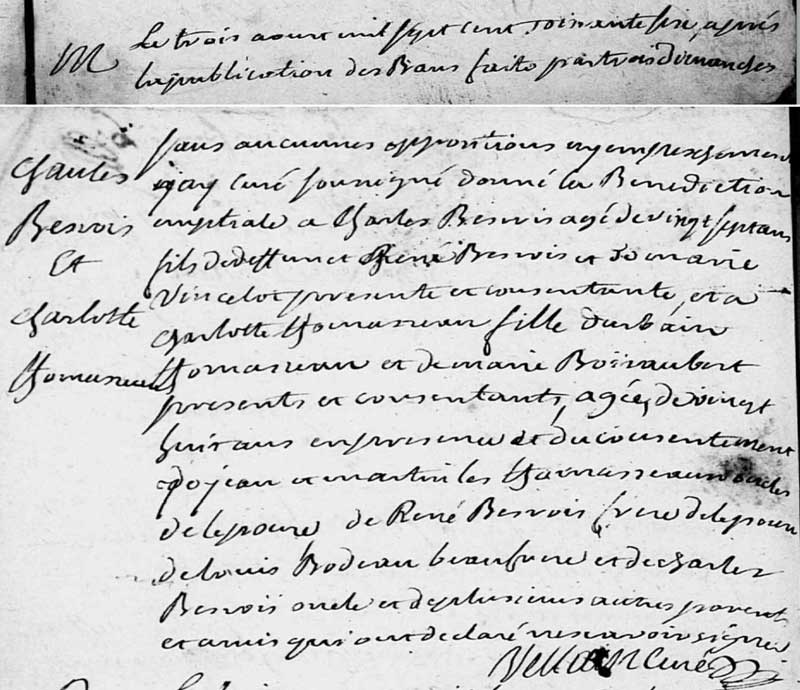 M
Le trois aoust mil sept cent soixante six, aprés
la publication des Bans faite par trois dimanches
Charles
Besvois
Et
Charlotte
thomasseau
sans aucunnes oppositions ny empeschement
jay curé sousigné donné la Benediction
nuptiale a Charles Besvois agé de vingt sept ans
fils de deffunct René Besvois et de marie
Vincelot presente et consentante, et a
Charlotte thomasseau fille durbain
thomasseau et de marie Boisaubert
presents et consentants, agée de vingt
huit ans en presence et du consentement
de jean et martin les thomasseaux oncles
de lepouse, de René Besvois frere de lepoux
de louis Bodeau beaufrere et de charles
Besvois oncle et de plusieurs autres parents
et amis qui ont declaré ne scavoir signer
curé